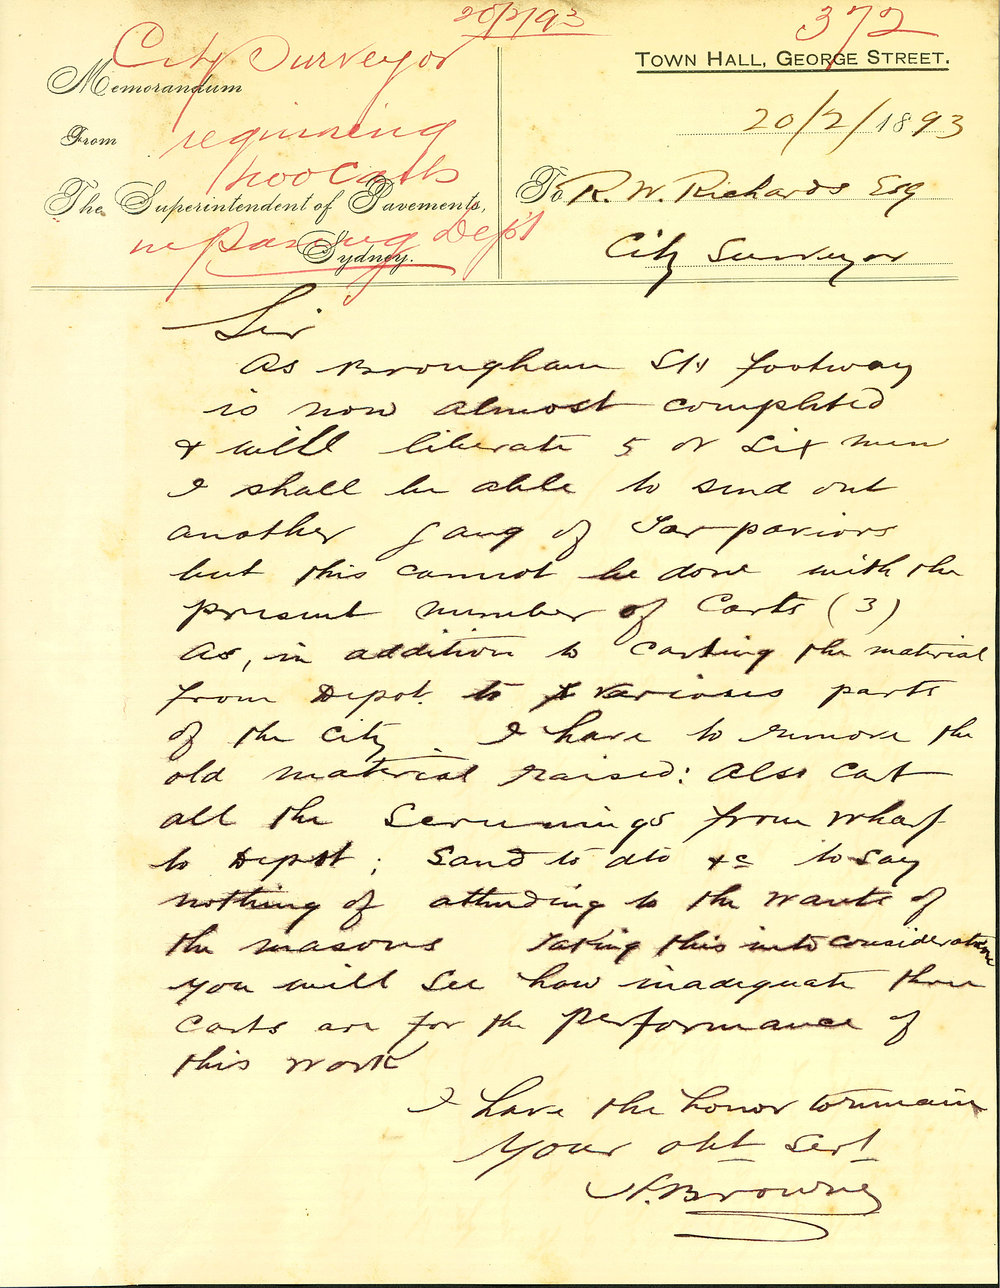 20/2/93
372
City Surveyor
Memorandum
TOWN HALL, GEORGE STREET.
20/2/1893
From
requireing
moo Carts
The Superintendent of Pavements,
in Paving Dep't
Sydney.
To R. W. Richards Esq
City Surveyor
Sir
As Brougham St. footway
is now almost completed
& will liberate 5 or six men
I shall be able to send out
another gang of Tar paviors
but this cannot be done with the
present number of Carts (3)
As, in addition to carting the material
from Depot. to various parts
of the city I have to remove the
old material raised: Also cart
all the Screenings from wharf
to Depot; Sand to dto &c to say
nothing of attending to the wants of
the masons Taking this into consideration
you will see how inadequate three
carts are for the performance of
this work
I have the honor to remain
Your obt Servt
Browne